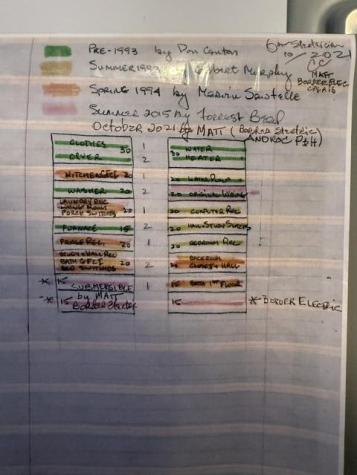 PRE-1993 by Don
SUMMER 1993 Murphy
SPRING 1994 by Marvin Sawtelle
SUMMER 2015 by Forrest
OCTOBER 2021 by MATT (
10/2021
MATT
BORDER ELEC
CLOTHES 30 1 WATER
DRYER 2 30 HEATER
KITCHEN 20 1 20 WATER PUMP
WASHER 20 2 20 ORIGINAL
LAUNDRY REC
LIVING ROOM 20 1 20 COMPUTER REC
PORCH SWITCHES
FURNACE 15 2 20 HALL STUDY
FRIDGE REC. 20 1 20 BEDROOM REC
HALL REC BEDROOM
BATH GFI 20 2 20 CLOSET & HALL
SWITCHES
* 15 1 15 BATH 1ST FLOOR
SUBMERSIBLE 2
by MATT
* 15 BORDER ELECTRIC 15 * BORDER ELECTRIC